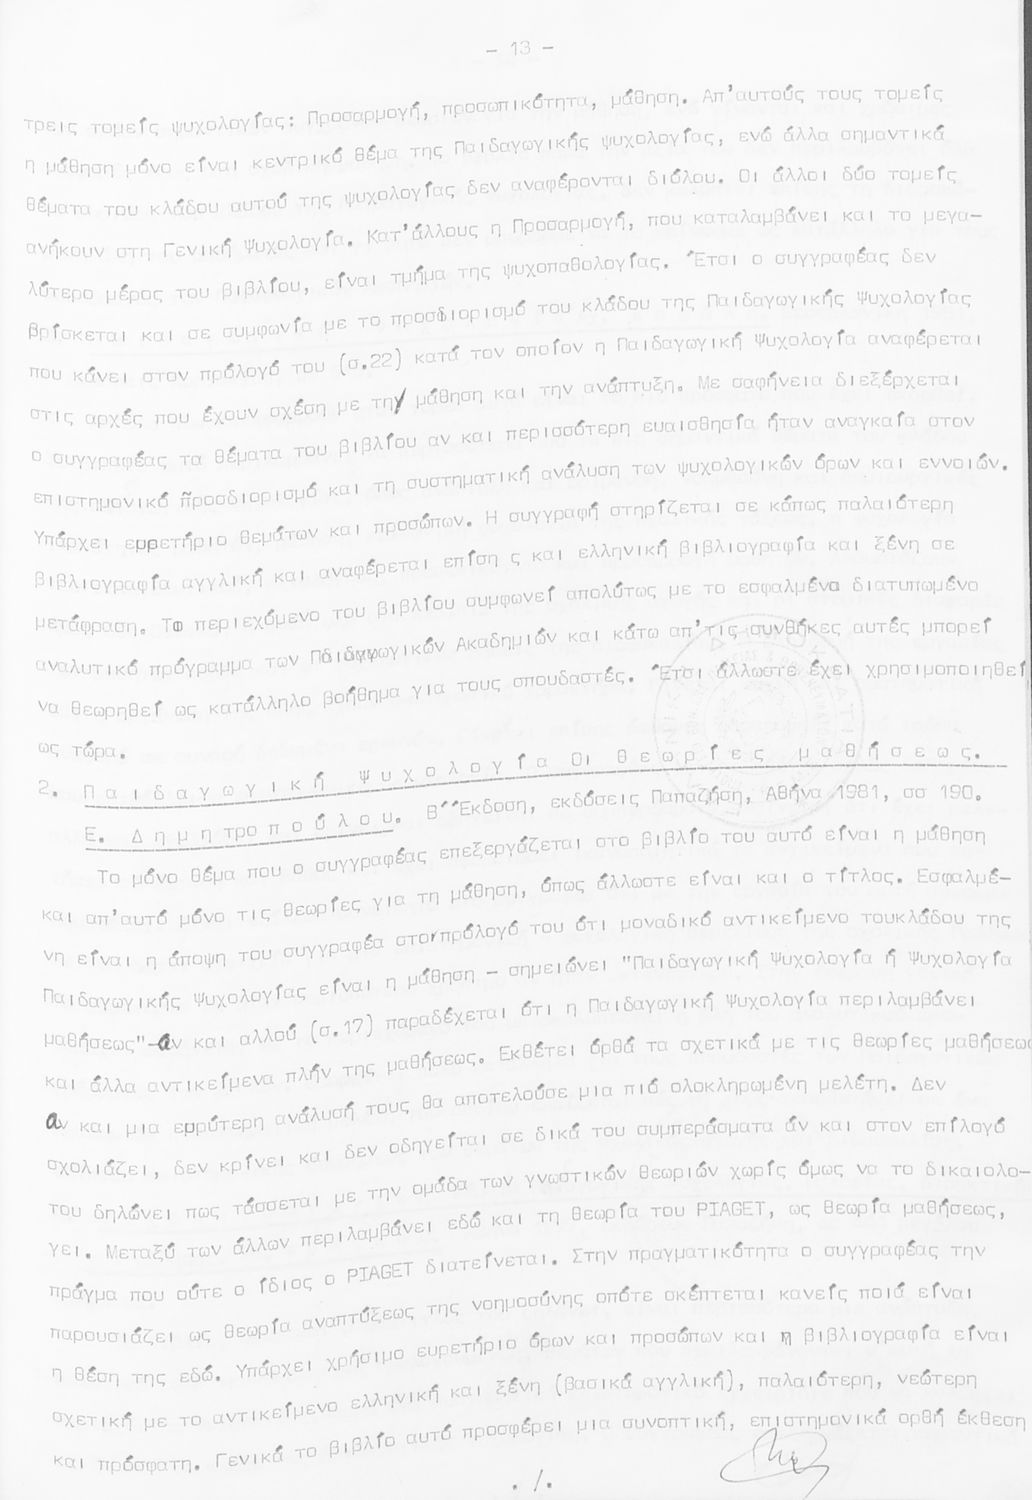 - 13 -
τρεις τομείς ψυχολογίας: Προσαρμογή, προσωπικότητα, μάθηση. Απ'αυτούς τους τομείς
η μάθηση μόνο είναι κεντρικό θέμα της Παιδαγωγικής ψυχολογίας, ενώ άλλα σημαντικά
θέματα του κλάδου αυτού της ψυχολογίας δεν αναφέρονται διόλου. Οι άλλοι δύο τομείς
ανήκουν στη Γενική Ψυχολογία. Κατ'άλλους η Προσαρμογή, που καταλαμβάνει και το μεγα-
λύτερο μέρος του βιβλίου, είναι τμήμα της ψυχοπαθολογίας. Έτσι ο συγγραφέας δεν
βρίσκεται και σε συμφωνία με το προσδιορισμό του κλάδου της Παιδαγωγικής Ψυχολογίας
που κάνει στον πρόλογό του (σ.22) κατά τον οποίον η Παιδαγωγική Ψυχολογία αναφέρεται
στις αρχές που έχουν σχέση με τη μάθηση και την ανάπτυξη. Με σαφήνεια διεξέρχεται
ο συγγραφέας τα θέματα του βιβλίου αν και περισσότερη ευαισθησία ήταν αναγκαία στον
επιστημονικό προσδιορισμό και τη συστηματική ανάλυση των ψυχολογικών όρων και εννοιών.
Υπάρχει ευρετήριο θεμάτων και προσώπων. Η συγγραφή στηρίζεται σε κάπως παλαιότερη
βιβλιογραφία αγγλική και αναφέρεται επίση ς και ελληνική βιβλιογραφία και ξένη σε
μετάφραση. Το περιεχόμενο του βιβλίου συμφωνεί απολύτως με το εσφαλμένα διατυπωμένο
αναλυτικό πρόγραμμα των Παιδαγωγικών Ακαδημιών και κάτω απ'τις συνθήκες αυτές μπορεί
να θεωρηθεί ως κατάλληλο βοήθημα για τους σπουδαστές. Έτσι άλλωστε έχει χρησιμοποιηθεί
ως τώρα.
2. Παιδαγωγική Ψυχολογία Οι θεωρίες μαθήσεως.
Ε. Δημητροπούλου. Β΄Έκδοση, εκδόσεις Παπαζήση, Αθήνα 1981, σσ 190.
Το μόνο θέμα που ο συγγραφέας επεξεργάζεται στο βιβλίο του αυτό είναι η μάθηση
και απ'αυτό μόνο τις θεωρίες για τη μάθηση, όπως άλλωστε είναι και ο τίτλος. Εσφαλμέ-
νη είναι η άποψη του συγγραφέα στο πρόλογό του ότι μοναδικό αντικείμενο τουκλάδου της
Παιδαγωγικής Ψυχολογίας είναι η μάθηση - σημειώνει "Παιδαγωγική Ψυχολογία ή Ψυχολογία
μαθήσεως"-αν και αλλού (σ.17) παραδέχεται ότι η Παιδαγωγική Ψυχολογία περιλαμβάνει
και άλλα αντικείμενα πλήν της μαθήσεως. Εκθέτει όρθά τα σχετικά με τις θεωρίες μαθήσεως
αν και μια ευρύτερη ανάλυσή τους θα αποτελούσε μια πιό ολοκληρωμένη μελέτη. Δεν
σχολιάζει, δεν κρίνει και δεν οδηγείται σε δικά του συμπεράσματα άν και στον επίλογό
του δηλώνει πως τάσσεται με την ομάδα των γνωστικών θεωριών χωρίς όμως να το δικαιολο-
γει. Μεταξύ των άλλων περιλαμβάνει εδώ και τη θεωρία του PIAGET, ως θεωρία μαθήσεως,
πράγμα που ούτε ο ίδιος ο PIAGET διατείνεται. Στην πραγματικότητα ο συγγραφέας την
παρουσιάζει ως θεωρία αναπτύξεως της νοημοσύνης οπότε σκέπτεται κανείς ποιά είναι
η θέση της εδώ. Υπάρχει χρήσιμο ευρετήριο όρων και προσώπων και η βιβλιογραφία είναι
σχετική με το αντικείμενο ελληνική και ξένη (βασικά αγγλική), παλαιότερη, νεώτερη
και πρόσφατη. Γενικά το βιβλίο αυτό προσφέρει μια συνοπτική, επιστημονικά ορθή έκθεση
./.